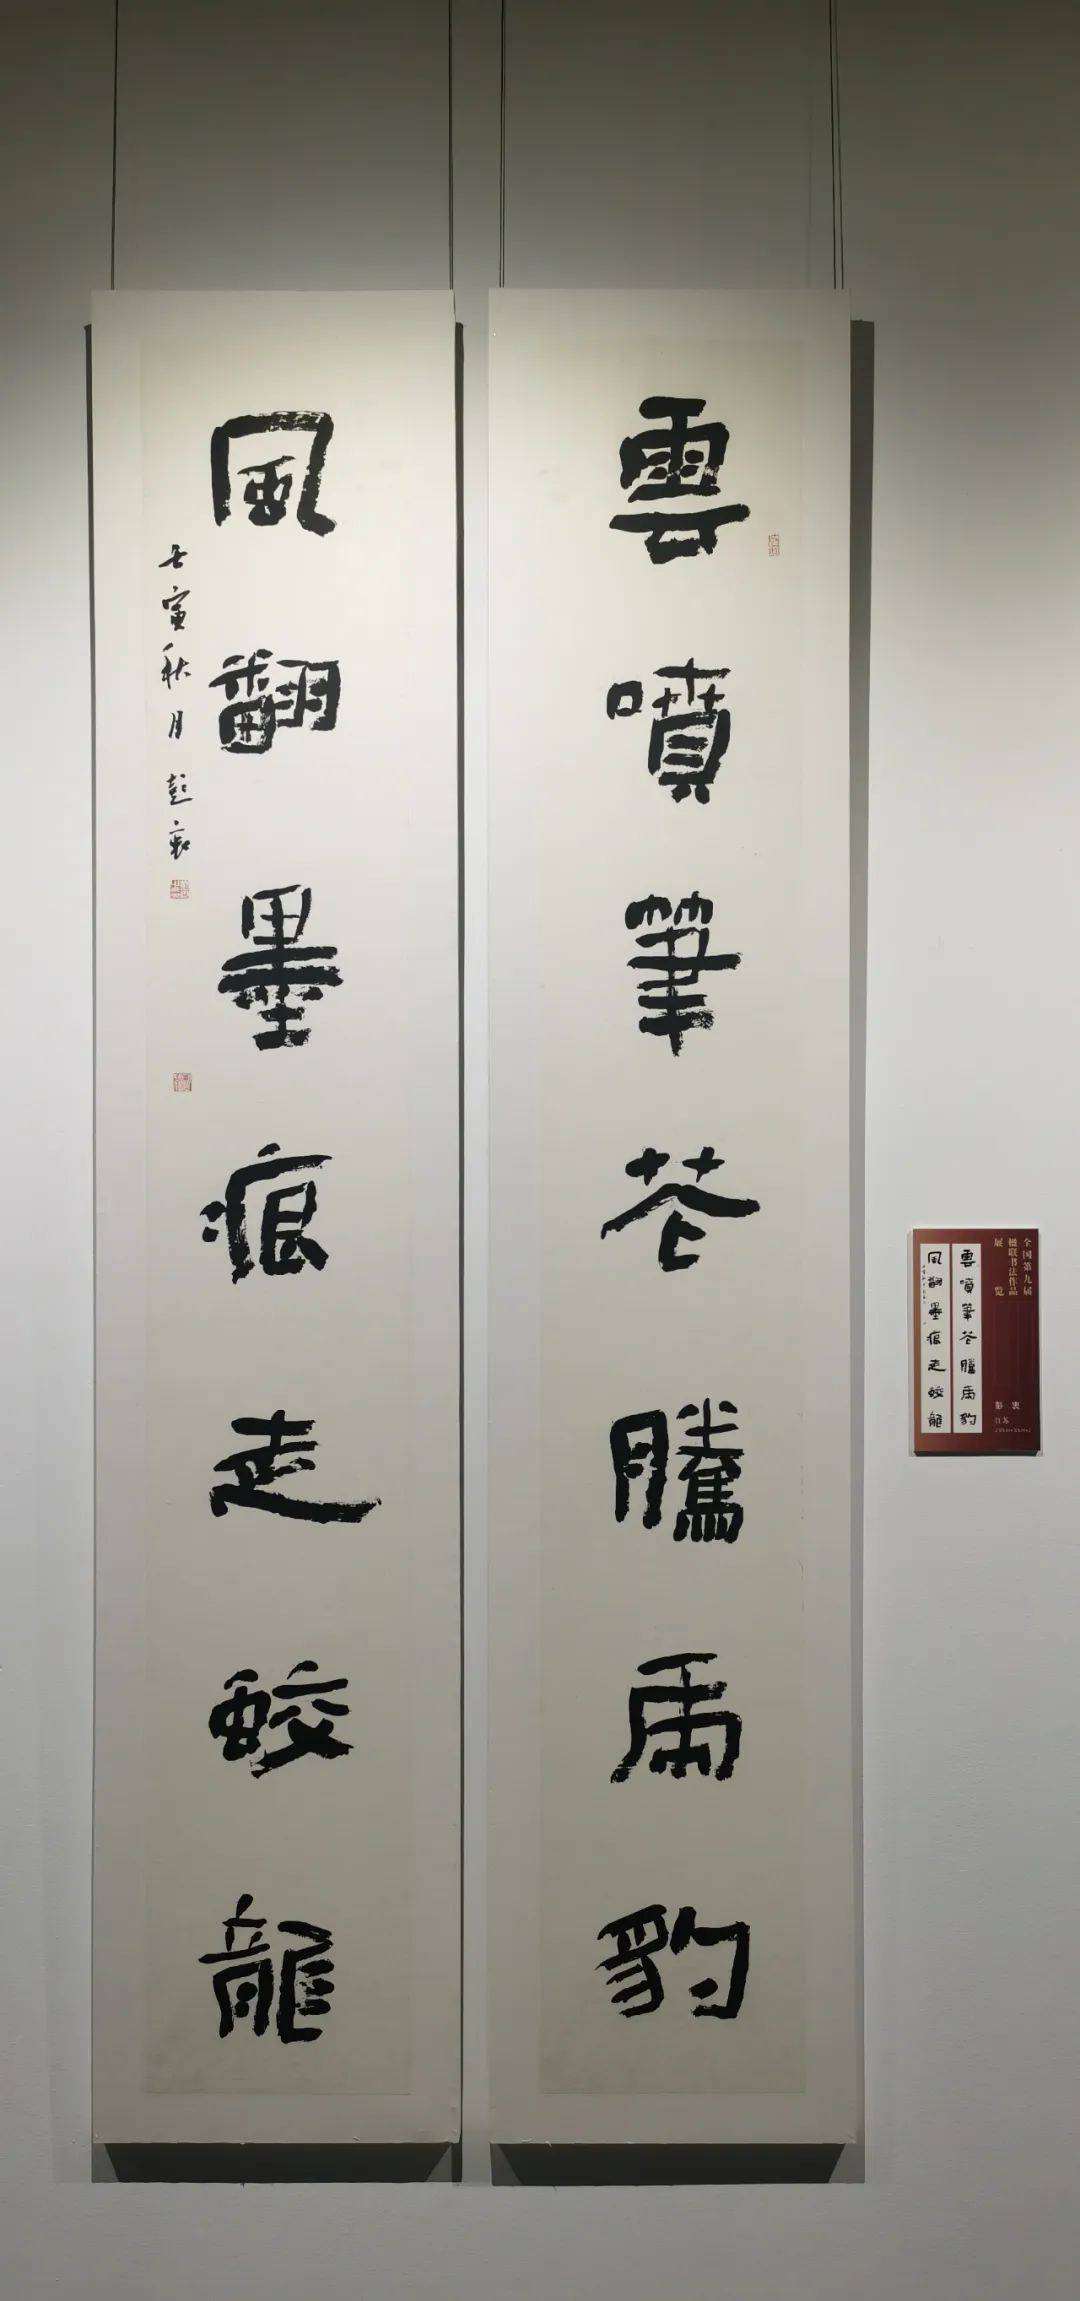 雲噴筆花騰虎豹
風翻墨痕走蛟龍
壬寅秋月彭衷
全国第九届
楹联书法作品
展览
彭衷
江苏
雲噴筆花騰虎豹
風翻墨痕走蛟龍